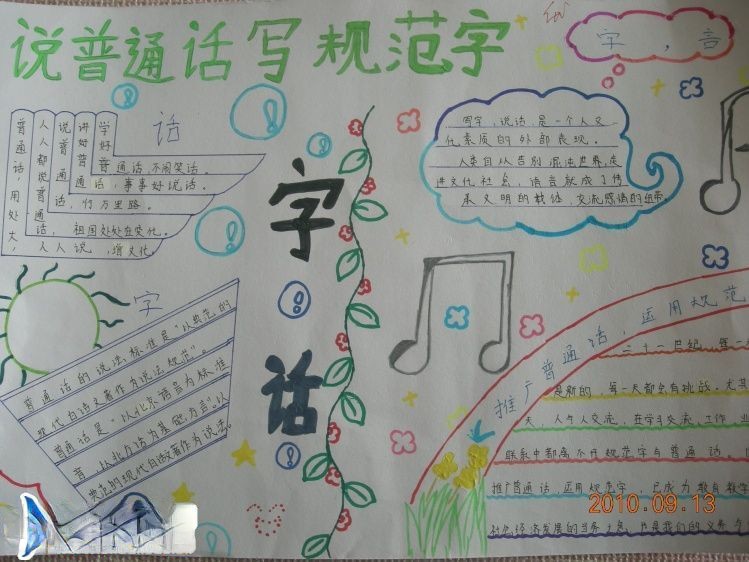 说普通话写规范字
字，言
话
学好普通话，不闹笑话。
讲好普通话，事事好说话。
说普通话，行万里路。
人人都说普通话，祖国处处在变化。
普通话，用处大，人人说，增文化
字
话
同学，说话是一个人文
化素质的外部表现。
人类自从告别混沌世界，走
进文化社会，语言就成了传
承文明的载体，交流感情的纽带。
字
普通话的说法标准是"以典范的
现代白话文著作为说法规范"。
普通话是，以北京语音为标准
音，以北方话为基础方言，以
典范的现代白话著作为说法。
推广普通话，运用规范
二十一世纪，每一
是新的，每一天都会有挑战。尤其
天，人与人交流，在学习交流，工作
联系中都离不开规范字与普通话。
推广普通话，应用规范字，已成为教育教学
社会经济发展的当务之急，也是我们的义务
2010.09.13